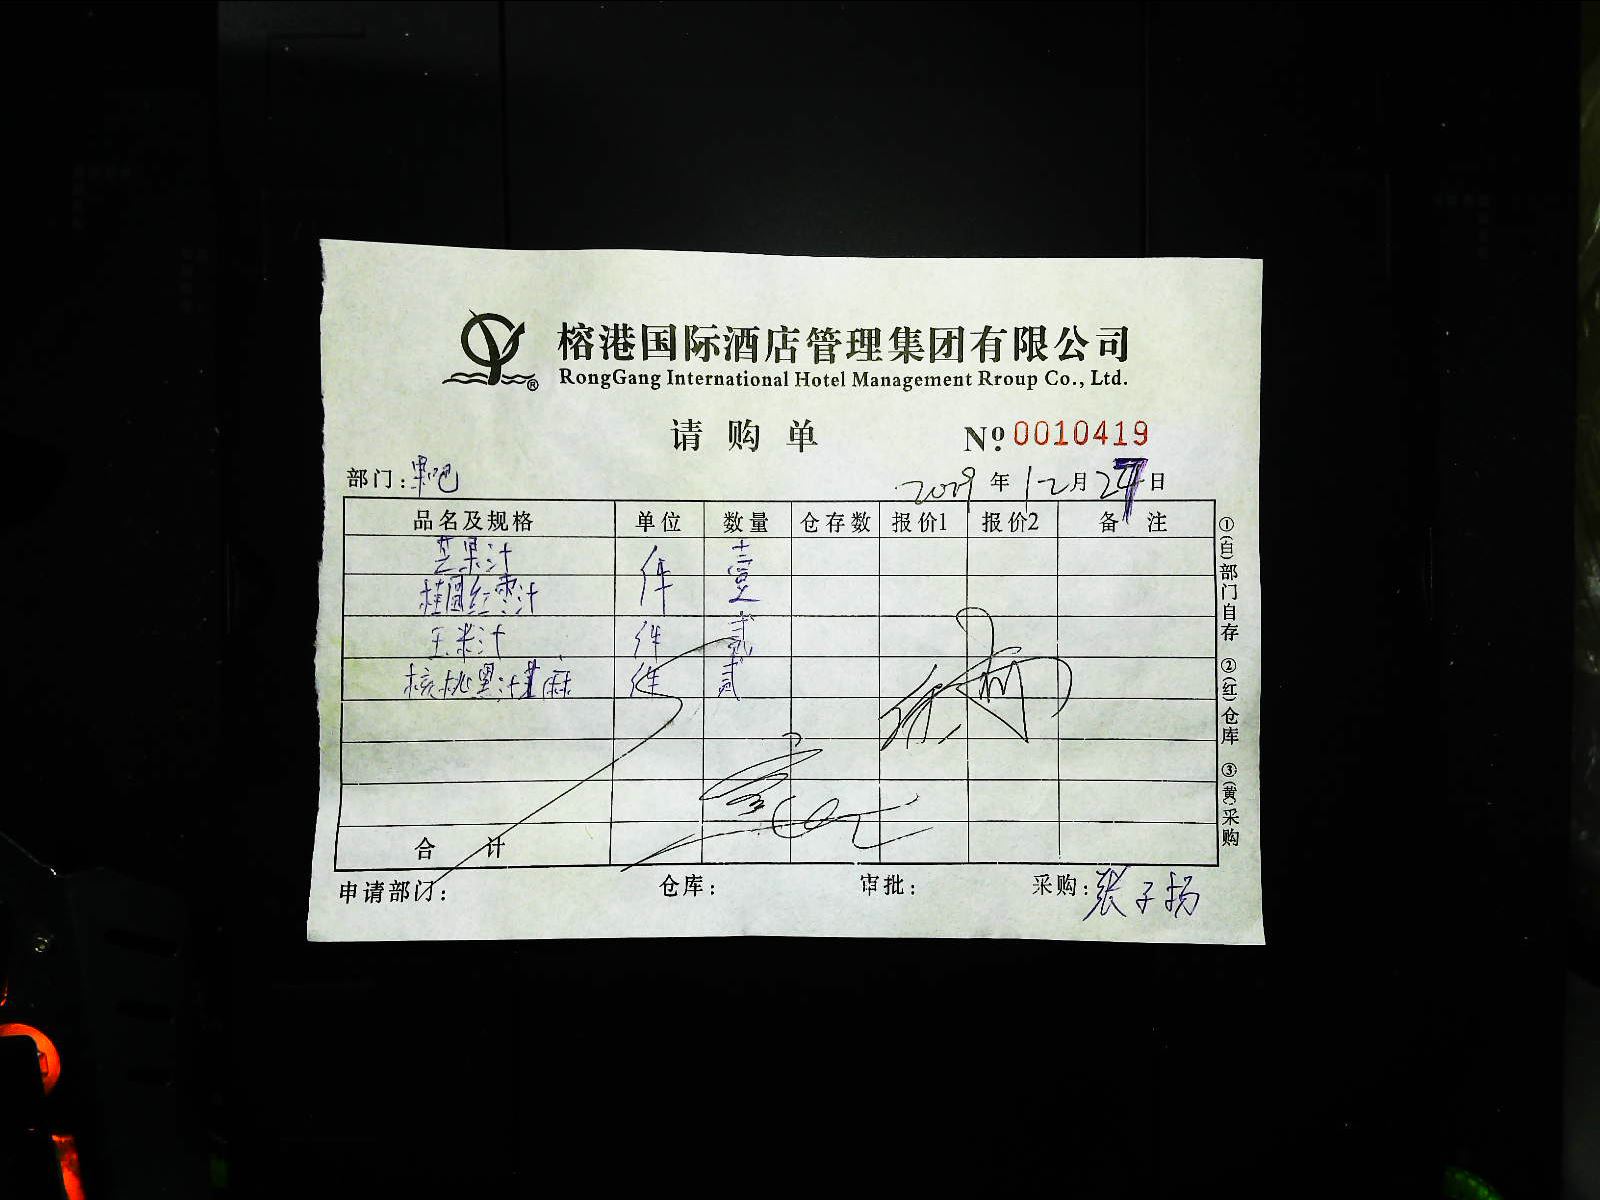 榕港国际酒店管理集团有限公司
RongGang International Hotel Management Rroup Co., Ltd.
请购单 №0010419
部门:果吧 年12月27日
品名及规格 单位 数量 仓存数 报价1 报价2 备注
芒果汁 件 壹
桂圆红枣汁
玉米汁 件 贰
核桃黑汁芝麻 件 贰
合计
申请部门: 仓库: 审批: 采购:张子扬
①(白)部门自存 ②(红)仓库 ③(黄)采购